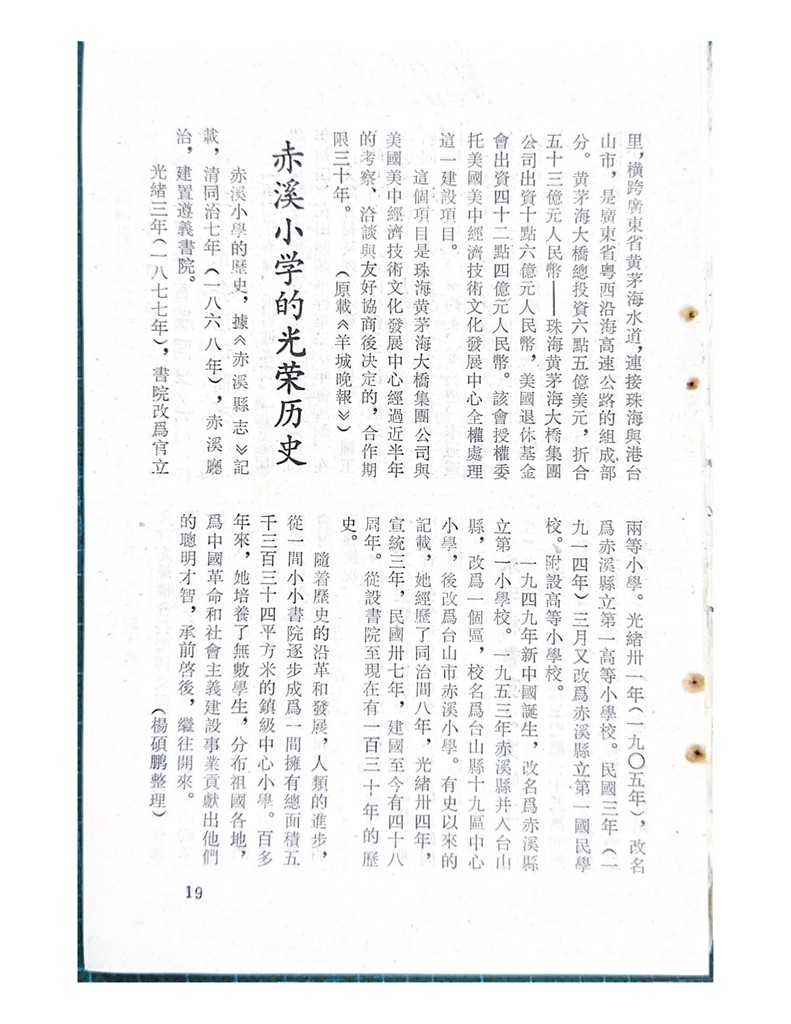 里，橫跨廣東省黄茅海水道，連接珠海與港台
山市，是廣東省粵西沿海高速公路的組成部
分。黄茅海大橋總投資六點五億美元，折合
五十三億元人民幣——珠海黄茅海大橋集團
公司出資十點六億元人民幣，美國退休基金
會出資四十二點四億元人民幣。該會授權委
托美國美中經濟技術文化發展中心全權處理
這一建設項目。
這個項目是珠海黄茅海大橋集團公司與
美國美中經濟技術文化發展中心經過近半年
的考察、洽談與友好協商後决定的，合作期
限三十年。
（原載《羊城晚報》）
赤溪小学的光荣历史
赤溪小學的歷史，據《赤溪縣志》記
載，清同治七年（一八六八年），赤溪廳
治，建置遵義書院。
光緒三年（一八七七年），書院改爲官立
兩等小學。光緒卅一年（一九〇五年），改名
爲赤溪縣立第一高等小學校。民國三年（一
九一四年）三月又改爲赤溪縣立第一國民學
校。附設高等小學校。
一九四九年新中國誕生，改名爲赤溪縣
立第一小學校。一九五三年赤溪縣并入台山
縣，改爲一個區，校名爲台山縣十九區中心
小學，後改爲台山市赤溪小學。有史以來的
記載，她經歷了同治間八年，光緒卅四年，
宣統三年，民國卅七年，建國至今有四十八
周年。從設書院至現在有一百三十年的歷
史。
隨着歷史的沿革和發展，人類的進步，
從一間小小書院逐步成爲一間擁有總面積五
千三百三十四平方米的鎮級中心小學。百多
年來，她培養了無數學生，分布祖國各地，
爲中國革命和社會主義建設事業貢獻出他們
的聰明才智，承前啓後，繼往開來。
（楊碩鹏整理）
19